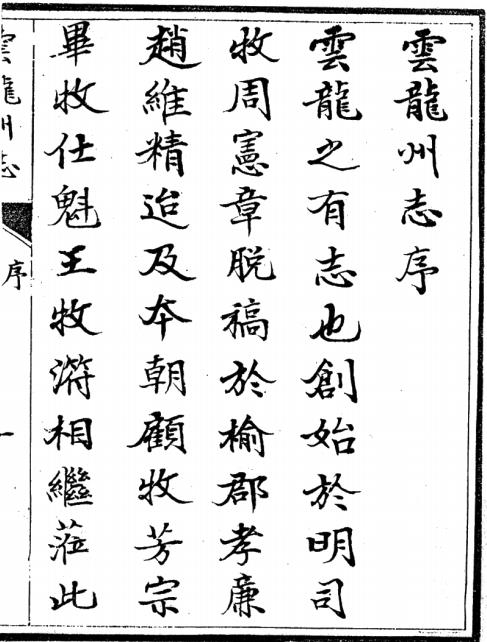 雲龍州志序
雲龍之有志也創始於明司
牧周憲章脫稿於榆郡孝廉
趙維精迨及本朝顧牧芳宗
畢牧仕魁王牧𣽂相繼蒞此
雲龍州志
序
一